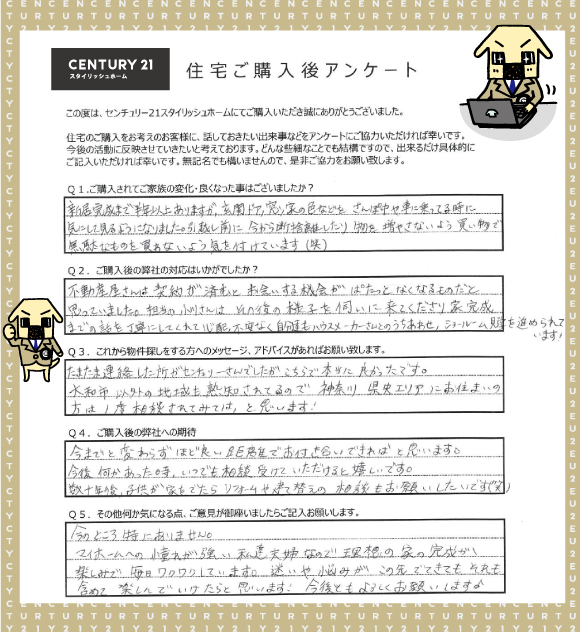 CENTURY 21
スタイリッシュホーム
住宅ご購入後アンケート
この度は、センチュリー21スタイリッシュホームにてご購入いただき誠にありがとうございました。
住宅のご購入をお考えのお客様に、話しておきたい出来事などをアンケートにご協力いただければ幸いです。
今後の活動に反映させていきたいと考えております。どんな些細なことでも結構ですので、出来るだけ具体的に
ご記入いただければ幸いです。無記名でも構いませんので、是非ご協力をお願い致します。
Q1.ご購入されてご家族の変化・良くなった事はございましたか？
新居完成まで半年以上ありますが、玄関ドア、窓、家の色などを さんぽ中や車に乗ってる時に
気にして見るようになりました。引越し前に 今から断捨離したり 物を増やさないよう 買い物で
無駄なものを買わないよう気を付けています(笑)
Q2. ご購入後の弊社の対応はいかがでしたか？
不動産屋さんは契約が済むと お会いする機会が ぱたっと なくなるものだと
思っていました。担当の小川さんは その後の様子を伺いに来てくださり 家完成
までの話を丁寧にしてくれて 心配、不安なく 自信もハウスメーカーさんとのうちあわせ、ショールーム見学を進められて
います!
Q3. これから物件探しをする方へのメッセージ、アドバイスがあればお願い致します。
たまたま連絡した所がセンチュリーさんでしたが こちらで本当に良かったです。
大和市以外の地域も熟知されてるので 神奈川 県央エリアにお住まいの
方は1度相談されてみては、と思います!
Q4. ご購入後の弊社への期待
今までと変わらず ほど良い距離でお付き合いできればと思います。
今後何かあった時、いつでも相談受けていただけると嬉しいです。
数十年後、子供が家をでたら リフォームや建て替えの相談もお願いしたいです(笑)
Q5. その他何か気になる点、ご意見が御座いましたらご記入お願いします。
今のところ特にありません。
マイホームへの憧れが強い私達夫婦なので 理想の家の完成が
楽しみで 毎日ワクワクしています。迷いや悩みが この先でてきても それも
含めて 楽しんでいけたらと思います! 今後ともよろしくお願いします♪